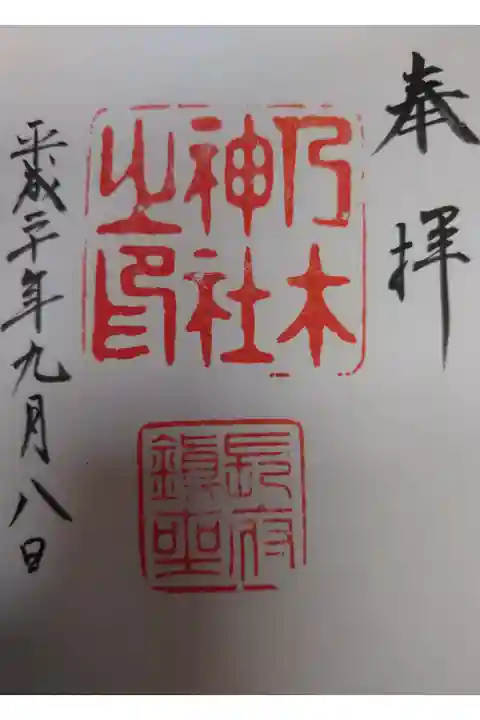 奉拝
乃木
神社
之印
長府
鎮
平成二十年九月八日